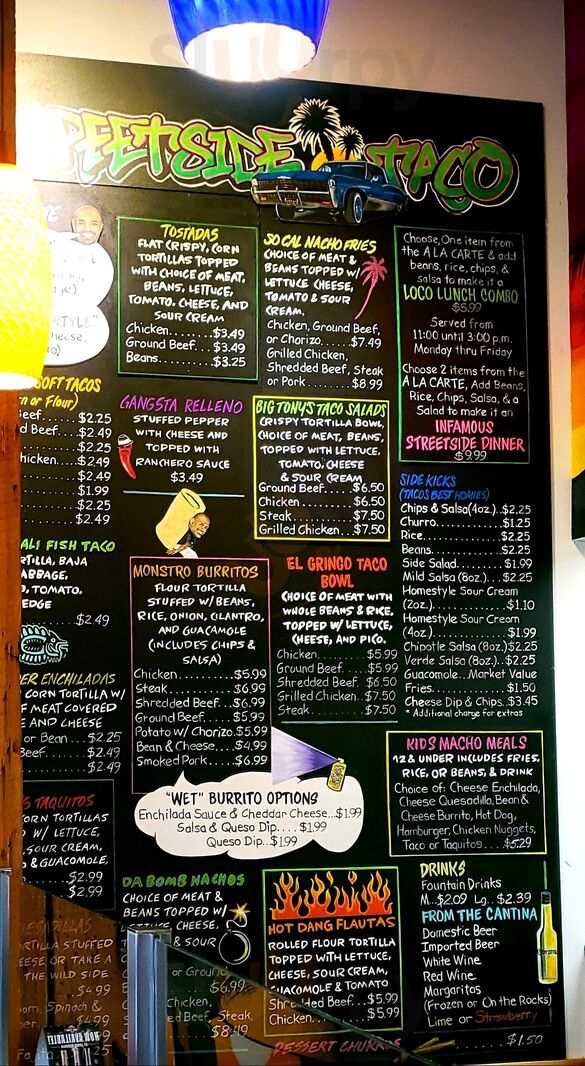 Slurrpy
REETSIDE TACO
STYLE"
SOFT TACOS
n or Flour)
eef...... $2.25
d Beef.... $2.49
$2.25
hicken.... $2.49
$2.49
$1.99
$2.25
$2.49
ALI FISH TACO
RTILLA, BAJA
ABBAGE,
, TOMATO,
EDGE
$2.49
ER ENCHILADAS
CORN TORTILLA W/
F MEAT COVERED
E AND CHEESE
or Bean ... $2.25
Beef..... $2.49
$2.49
S TAQUITOS
CORN TORTILLAS
D W/ LETTUCE,
SOUR CREAM,
O & GUACAMOLE.
$2.99
$2.99
ESADILLAS
RTILLA STUFFED
EESE OR TAKE A
THE WILD SIDE
$4.99
Spinach &
$4.99
NOW AVAILABLE!
TOSTADAS
FLAT CRISPY, CORN
TORTILLAS TOPPED
WITH CHOICE OF MEAT,
BEANS, LETTUCE,
TOMATO, CHEESE, AND
SOUR CREAM
Chicken........$3.49
Ground Beef... $3.49
Beans..........$3.25
GANGSTA RELLENO
STUFFED PEPPER
WITH CHEESE AND
TOPPED WITH
RANCHERO SAUCE
$3.49
MONSTRO BURRITOS
FLOUR TORTILLA
STUFFED W/ BEANS,
RICE, ONION, CILANTRO,
AND GUACAMOLE
(INCLUDES CHIPS &
SALSA)
Chicken..........$5.99
Steak............$6.99
Shredded Beef...$6.99
Ground Beef.....$5.99
Potato w/ Chorizo.$5.99
Bean & Cheese....$4.99
Smoked Pork.....$6.99
"WET" BURRITO OPTIONS
Enchilada Sauce & Cheddar Cheese...$1.99
Salsa & Queso Dip.... $1.99
Queso Dip..$1.99
DA BOMB NACHOS
CHOICE OF MEAT &
BEANS TOPPED W/
LETTUCE, CHEESE,
& SOUR
or Ground
$6.99
Chicken,
ed Beef, Steak,
$8.49
SO CAL NACHO FRIES
CHOICE OF MEAT &
BEANS TOPPED W/
LETTUCE CHEESE,
TOMATO & SOUR
CREAM.
Chicken, Ground Beef,
or Chorizo.......$7.49
Grilled Chicken,
Shredded Beef, Steak
or Pork......... $8.99
BIG TONYS TACO SALADS
CRISPY TORTILLA BOWL,
CHOICE OF MEAT, BEANS,
TOPPED WITH LETTUCE,
TOMATO, CHEESE
& SOUR CREAM
Ground Beef.... $6.50
Chicken........ $6.50
Steak.......... $7.50
Grilled Chicken..$7.50
EL GRINGO TACO
BOWL
CHOICE OF MEAT WITH
WHOLE BEANS & RICE,
TOPPED W/ LETTUCE,
CHEESE, AND PICO.
Chicken.......... $5.99
Ground Beef.... $5.99
Shredded Beef. $6.50
Grilled Chicken..$7.50
Steak........... $7.50
HOT DANG FLAUTAS
ROLLED FLOUR TORTILLA
TOPPED WITH LETTUCE,
CHEESE, SOUR CREAM,
GUACAMOLE & TOMATO
Shredded Beef...$5.99
Chicken..........$5.99
DESSERT CHURROS
$1.50
Choose, One item from
the A LA CARTE & add
beans, rice, chips, &
salsa to make it a
LOCO LUNCH COMBO
$5.99
Served from
11:00 until 3:00 p.m.
Monday thru Friday
Choose 2 items from the
A LA CARTE, Add Beans,
Rice, Chips, Salsa, & a
Salad to make it an
INFAMOUS
STREETSIDE DINNER
$9.99
SIDE KICKS
(TACOS BEST HOMIES)
Chips & Salsa(4oz.)..$2.25
Churro...............$1.25
Rice.................$2.25
Beans................$2.25
Side Salad...........$1.99
Mild Salsa (8oz.)...$2.25
Homestyle Sour Cream
(2oz.)..............$1.10
Homestyle Sour Cream
(4oz.)..............$1.99
Chipotle Salsa (8oz.)$2.25
Verde Salsa (8oz.)..$2.25
Guacamole...Market Value
Fries...............$1.50
Cheese Dip & Chips..$3.45
* Additional charge for extras
KIDS MACHO MEALS
12 & UNDER INCLUDES FRIES,
RICE, OR BEANS, & DRINK
Choice of: Cheese Enchilada,
Cheese Quesadilla, Bean &
Cheese Burrito, Hot Dog,
Hamburger, Chicken Nuggets,
Taco or Taquitos.... $5.29
DRINKS
Fountain Drinks
M..$2.09 Lg..$2.39
FROM THE CANTINA
Domestic Beer
Imported Beer
White Wine
Red Wine
Margaritas
(Frozen or On the Rocks)
Lime or Strawberry
Corona